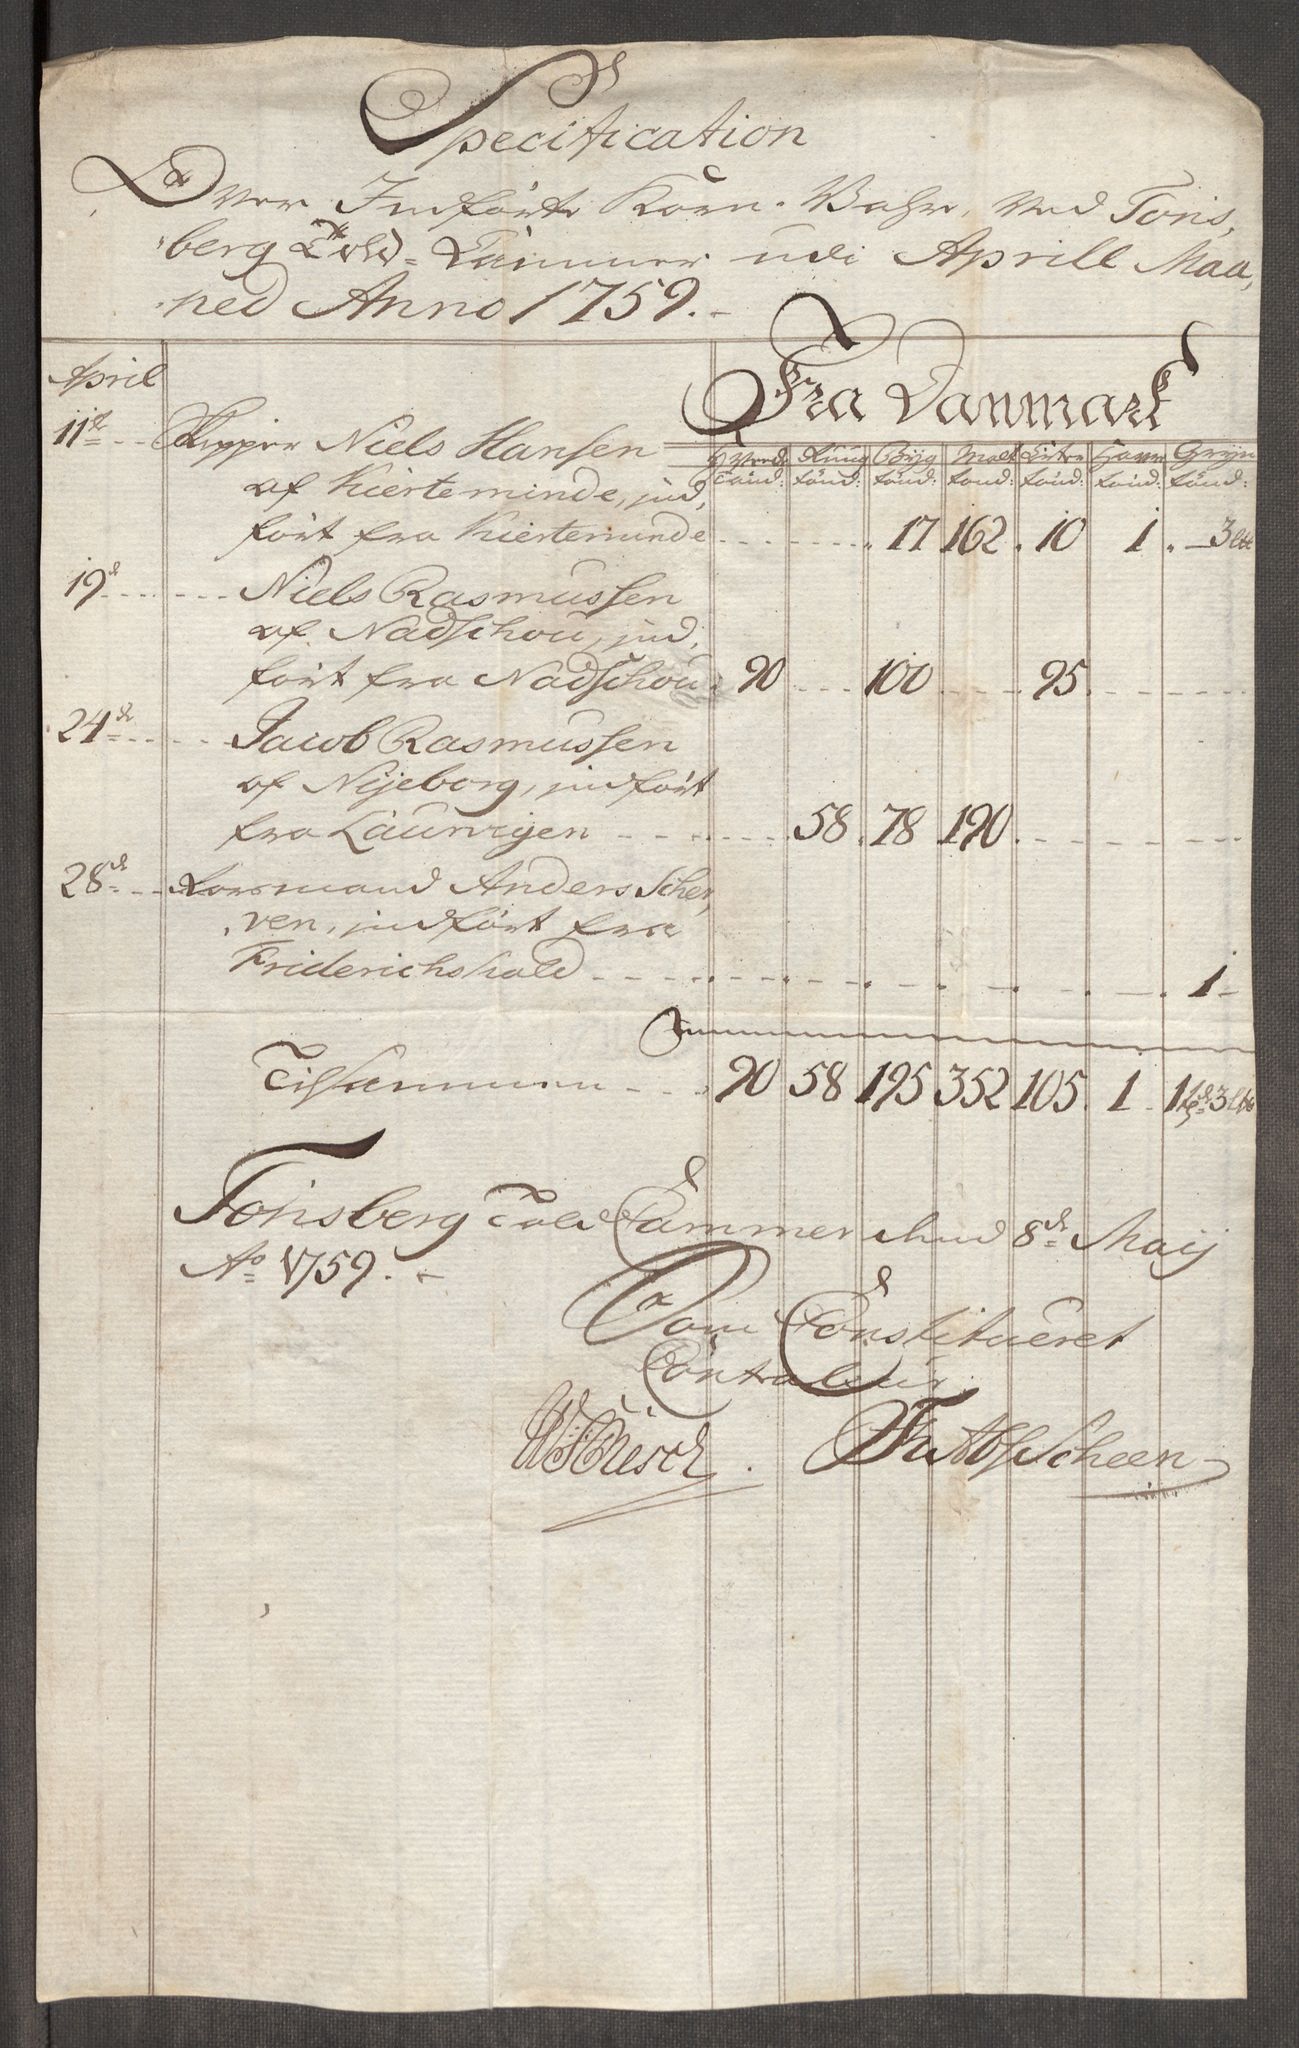 Specification
Over Indførte Korn-Vahre, Ved Tøns,
berg Told-Cammer udi Aprill Maa,
ned Anno 1759.
April
Fra Danmark
Hvede Rug Byg Malt Erter Havre Gryn
tønd: tønd: tønd: tønd: tønd: tønd: tønd:
11te Skipper Niels Hansen
af Kierteminde, ind,
ført fra Kierteminde 17 162 10 1 3
19de Niels Rasmussen
af Nadschou, ind,
ført fra Nadschou 90 100 95
24de Jacob Rasmussen
af Nyeborg, indført
fra Laurvigen 58 78 190
28de Andersscher,
ven, indført fra
Friderichshald 1
Tilsammen 90 58 195 352 105 1 1 3
Tønsberg Told Cammer d 8de Maij
Ao 1759.
Som Constitueret
Contraleur
Scheen